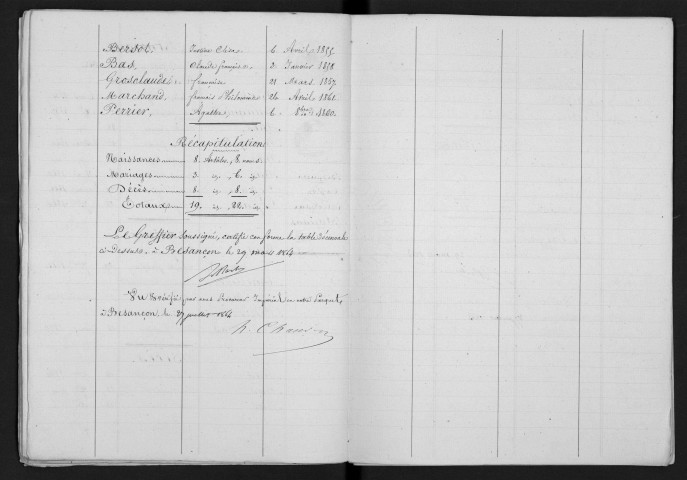 Bersot, 6 Avril 1855.
Bas, Claude françois 2 Janvier 1858.
Grosclaude, françoise 21 Mars 1857.
Marchand, françois Philomène 24 Avril 1861.
Perrier, Agathe, 6 8bre 1860.
Récapitulation
Naissances 8 Articles, 8 noms
Mariages 3 id 6 id
Décès 8 id 8 id
Totaux 19 id 22 id
Le Greffier soussigné, certifie conforme la table décennale
ci Dessus, à Besançon le 29 mars 1864
Vu & vérifié par nous Procureur Impérial en notre Parquet,
à Besançon, le 27 juillet 1864